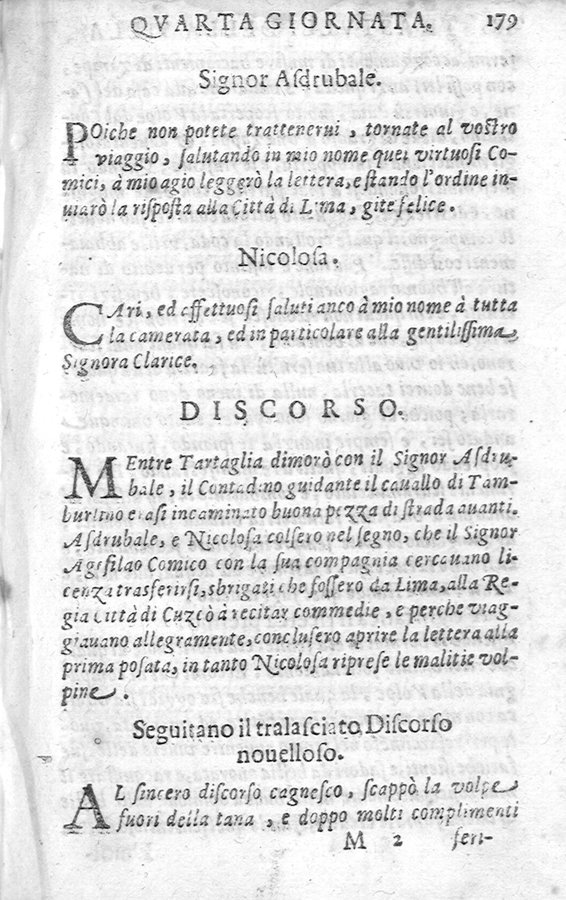 QVARTA GIORNATA. 179
Signor Asdrubale.
POiche non potete trattenerui, tornate al vostro
viaggio, salutando in mio nome quei virtuosi Co-
mici, à mio agio leggerò la lettera, e stando l'ordine in-
uiarò la risposta alla Città di Lima, gite felice.
Nicolosa.
CAri, ed affettuosi saluti anco à mio nome à tutta
la camerata, ed in particolare alla gentilissima
Signora Clarice.
DISCORSO.
MEntre Tartaglia dimorò con il Signor Asdru-
bale, il Contadino guidante il cauallo di Tam-
burlino erasi incaminato buona pezza di strada auanti.
Asdrubale, e Nicolosa colsero nel segno, che il Signor
Agesilao Comico con la sua compagnia cercauano li-
cenza trasferirsi, sbrigati che fossero da Lima, alla Re-
gia Città di Cuzcò à recitar commedie, e perche viag-
giauano allegramente, conclusero aprire la lettera alla
prima posata, in tanto Nicolosa riprese le malitie vol-
pine.
Seguitano il tralasciato Discorso
nouelloso.
AL sincero discorso cagnesco, scappò la volpe
fuori della tana, e doppo molti complimenti
M 2 feri-